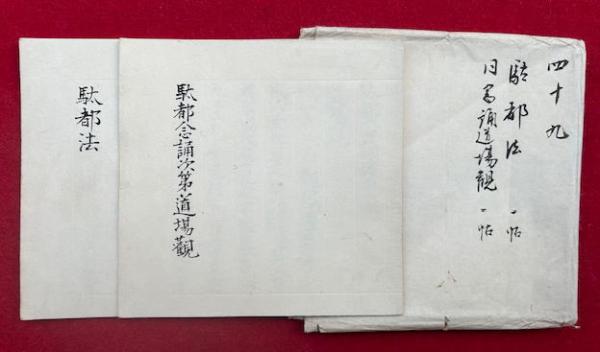 四十九
駄都法 一帖
同念誦道場觀 一帖
駄都念誦次第道場觀
駄都法